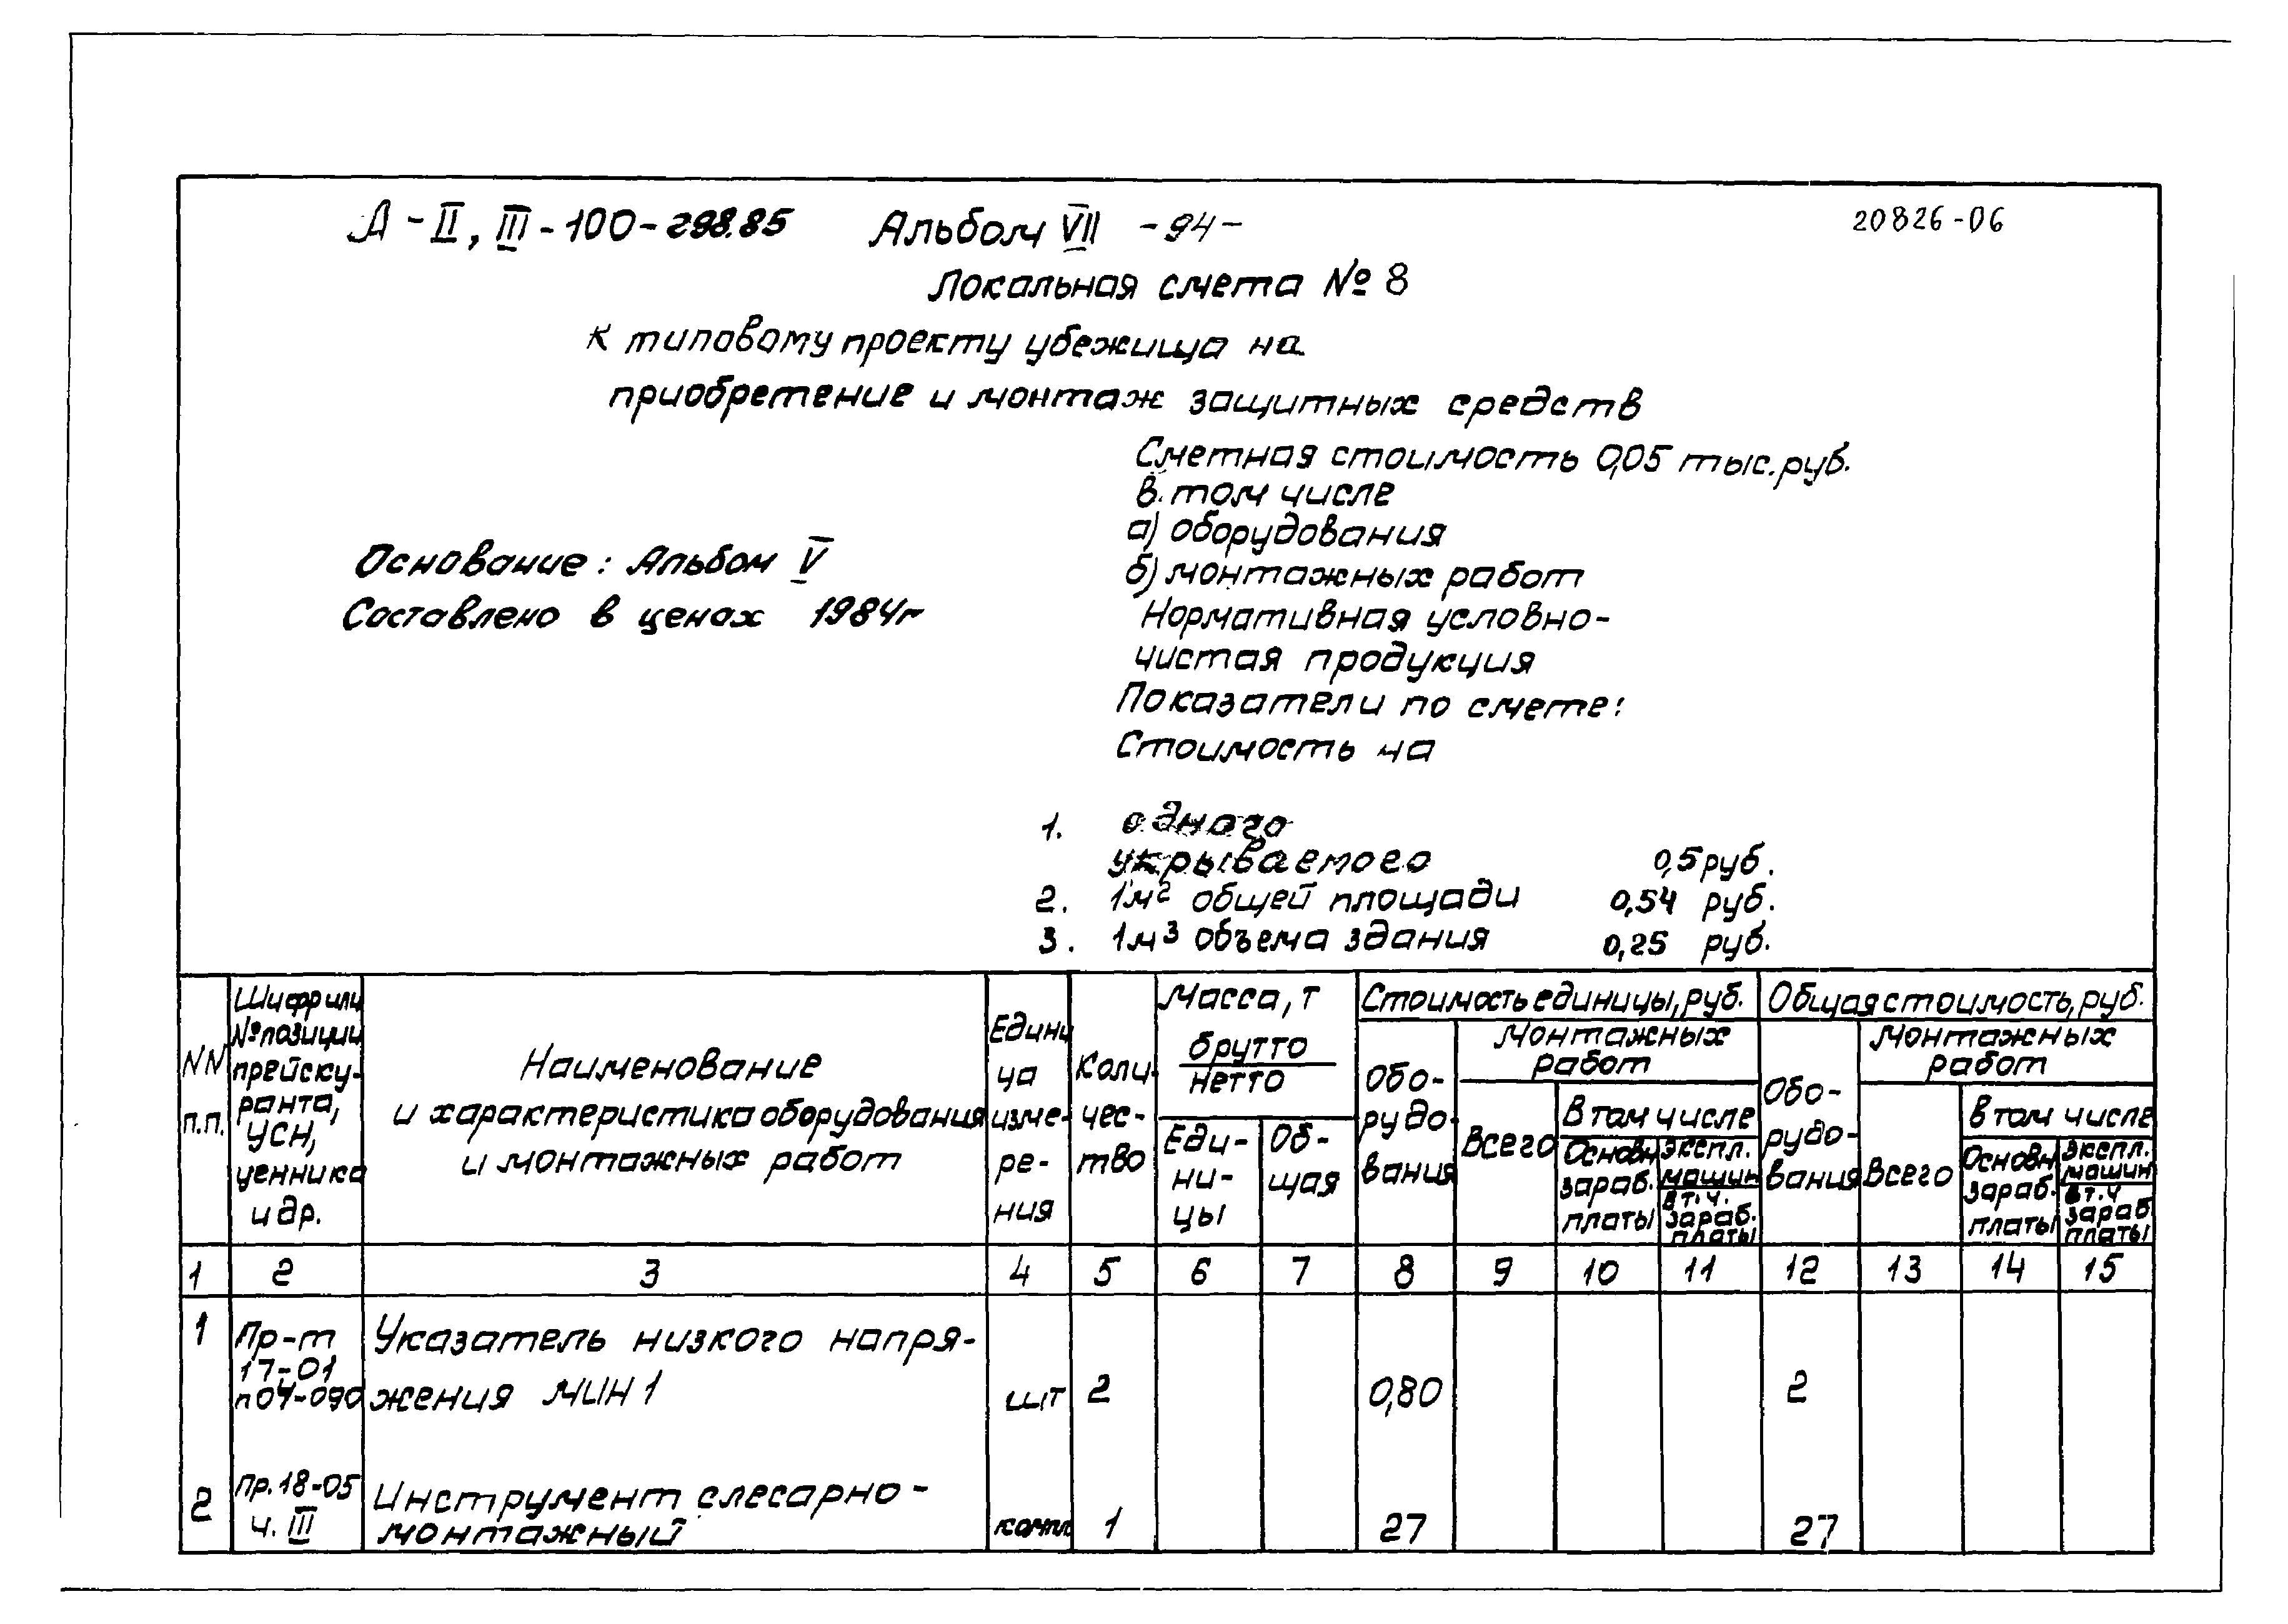 А-II, III-100-298.85 Альбом VII -94- 20826-06
Локальная смета № 8
к типовому проекту убежища на
приобретение и монтаж защитных средств
Сметная стоимость 0,05 тыс.руб.
в том числе
а) оборудования
Основание: Альбом V
б) монтажных работ
Составлено в ценах 1984г
Нормативная условно-
чистая продукция
Показатели по смете:
Стоимость на
1. одного
укрываемого 0,5 руб.
2. 1м² общей площади 0,54 руб.
3. 1м³ объема здания 0,25 руб.
NN
п.п.
Шифр или
№ позиции
прейску-
ранта,
УСН,
ценника
и др.
Наименование
и характеристика оборудования
и монтажных работ
Едини
ца
изме-
ре-
ния
Коли-
чес-
тво
Масса, т
брутто
нетто
Еди-
ни-
цы
Об-
щая
Стоимость единицы, руб.
Обо-
рудо-
вания
Монтажных
работ
Всего
В том числе
Основн
зараб.
платы
экспл.
машин
в т.ч.
зараб.
платы
Общая стоимость, руб.
Обо-
рудо-
вания
Монтажных
работ
Всего
В том числе
Основн
зараб.
платы
экспл.
машин
в т.ч
зараб
платы
1 2 3 4 5 6 7 8 9 10 11 12 13 14 15
1 Пр-т Указатель низкого напря-
17-01
п04-090 жения МИН 1 шт 2 0,80 2
Пр. 18-05 Инструмент слесарно-
2 ч. III монтажный компл 1 27 27